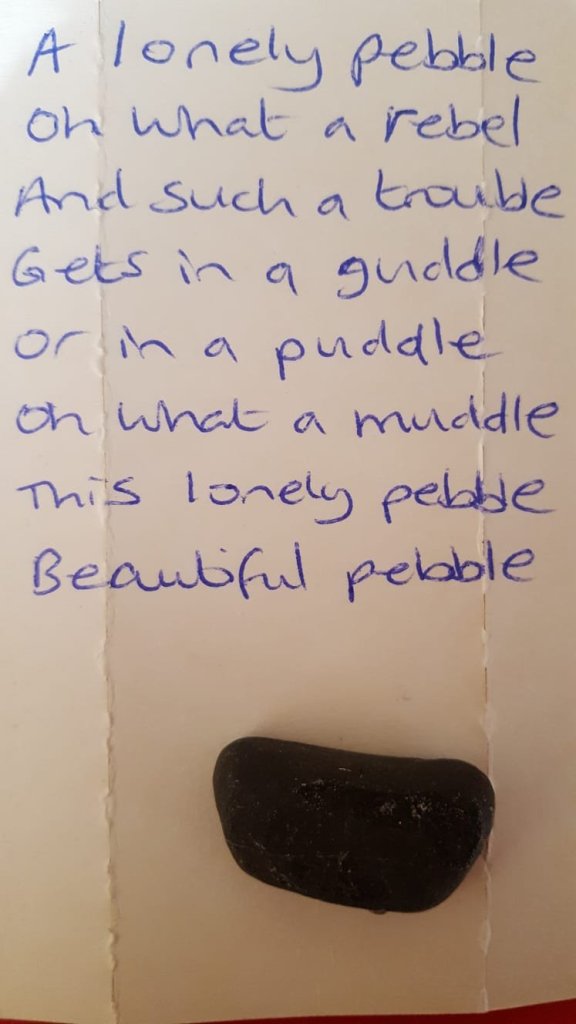 A lonely pebble
Oh what a rebel
And such a trouble
Gets in a guddle
or in a puddle
Oh what a muddle
This lonely pebble
Beautiful pebble